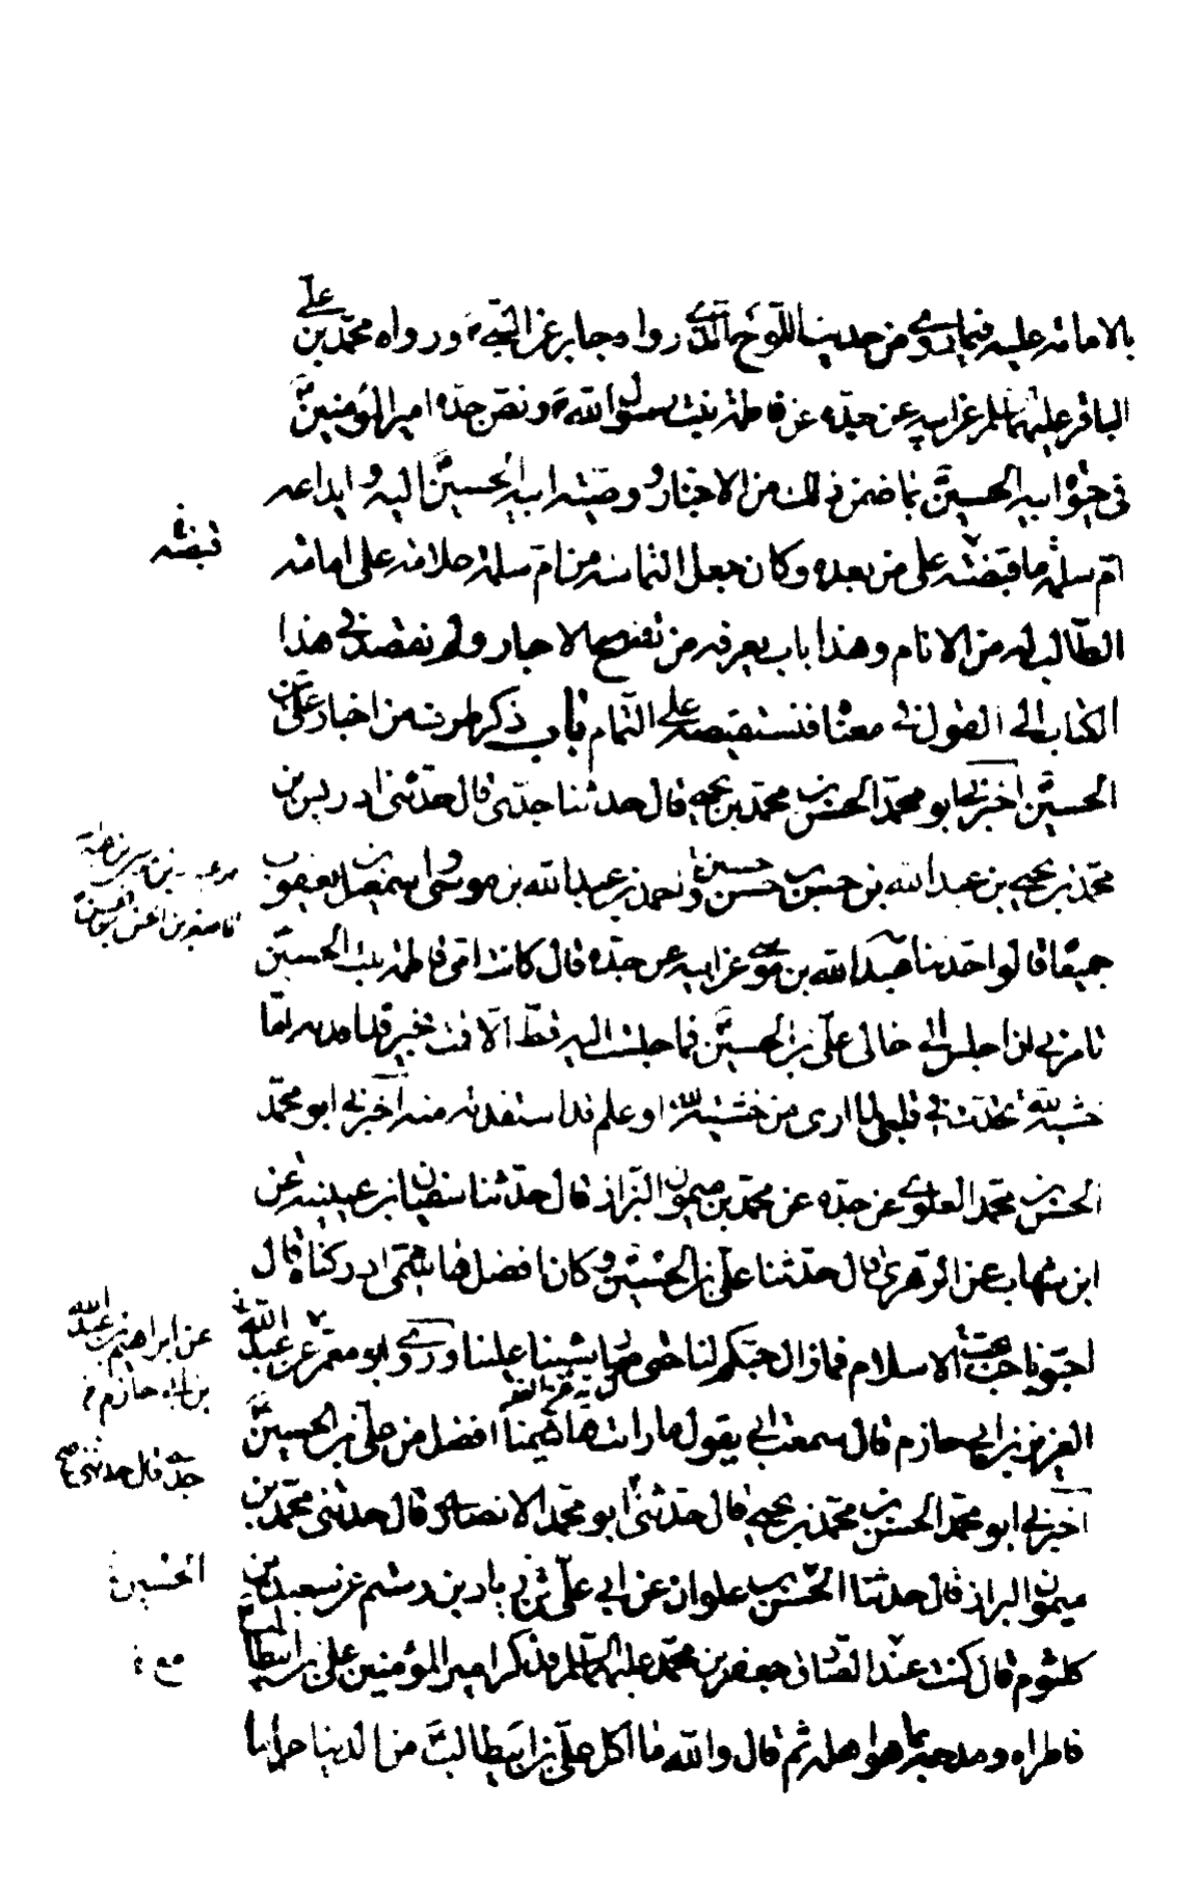 بالامامة عليه فيما روي من حديث اللوح الذي رواه جابر عن النبي ص ورواه محمد بن علي
الباقر عليهما السلم عن ابيه عن جده عن فاطمة بنت رسول الله ص ونص جده امير المؤمنين ع
في حيوة ابيه الحسين ع بما ضمن ذلك من الاخبار ووصية ابيه الحسين ع اليه وايداعه
ام سلمة ما قبضه على من بعده وكان جعل التماسه من ام سلمة علامة على امامة
قبضه
الطالب له من الانام وهذا باب يعرفه من تصفح الاخبار ولم نقصد في هذا
الكتاب الى القول في معناه فنستقصيه على التمام باب ذكر طرف من اخبار علي بن
الحسين ع اخبرني ابو محمد الحسن بن محمد بن يحيى قال حدثنا جدي قال حدثني ادريس بن
محمد بن يحيى بن عبد الله بن حسن بن حسن واحمد بن عبد الله بن موسى واسمعيل بن يعقوب
جميعا قالوا حدثنا عبد الله بن موسى عن ابيه عن جده قال كانت امي فاطمة بنت الحسين ع
تامرني ان اجلس الى خالي علي بن الحسين ع فما جلست اليه قط الا قمت بخير قد افدته اما
خشية لله تحدث في قلبي لما ارى من خشيته لله او علم قد استفدته منه اخبرني ابو محمد
الحسن بن محمد العلوي عن جده عن محمد بن ميمون البزاز قال حدثنا سفيان بن عيينة عن
ابن شهاب عن الزهري قال حدثنا علي بن الحسين ع وكان افضل هاشمي ادركناه قال
احبونا حب الاسلام فما زال حبكم لنا حتى صار شينا علينا وروى ابو معمر عن عبد
عن ابراهيم بن عبد الله
العزيز بن ابي حازم قال سمعت ابي يقول ما رايت هاشميا افضل من علي بن الحسين ع
بن ابي حازم
اخبرني ابو محمد الحسن بن محمد بن يحيى قال حدثني ابو محمد الانصاري قال حدثني محمد بن
جدي قال حدثني
ميمون البزاز قال حدثنا الحسن بن علوان عن ابي علي بن زياد بن رستم عن سعيد بن
الحسين
كلثوم قال كنت عند الصادق جعفر بن محمد عليهما السلم فذكر امير المؤمنين علي بن ابيطالب ع
فاطراه ومدحه بما هو اهله ثم قال والله ما اكل علي بن ابيطالب ع من الدنيا حراما